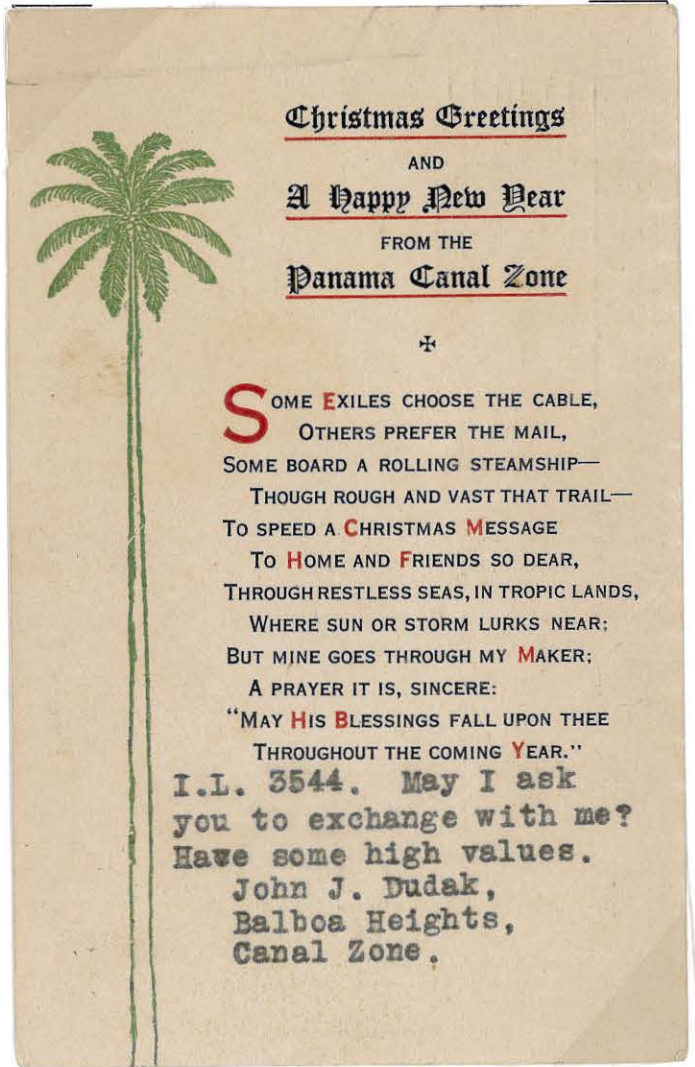 Christmas Greetings
AND
A Happy New Year
FROM THE
Panama Canal Zone
SOME EXILES CHOOSE THE CABLE,
OTHERS PREFER THE MAIL,
SOME BOARD A ROLLING STEAMSHIP—
THOUGH ROUGH AND VAST THAT TRAIL—
TO SPEED A CHRISTMAS MESSAGE
TO HOME AND FRIENDS SO DEAR,
THROUGH RESTLESS SEAS, IN TROPIC LANDS,
WHERE SUN OR STORM LURKS NEAR;
BUT MINE GOES THROUGH MY MAKER;
A PRAYER IT IS, SINCERE:
“MAY HIS BLESSINGS FALL UPON THEE
THROUGHOUT THE COMING YEAR.”
I.L. 3544. May I ask
you to exchange with me?
Have some high values.
John J. Dudak,
Balboa Heights,
Canal Zone.